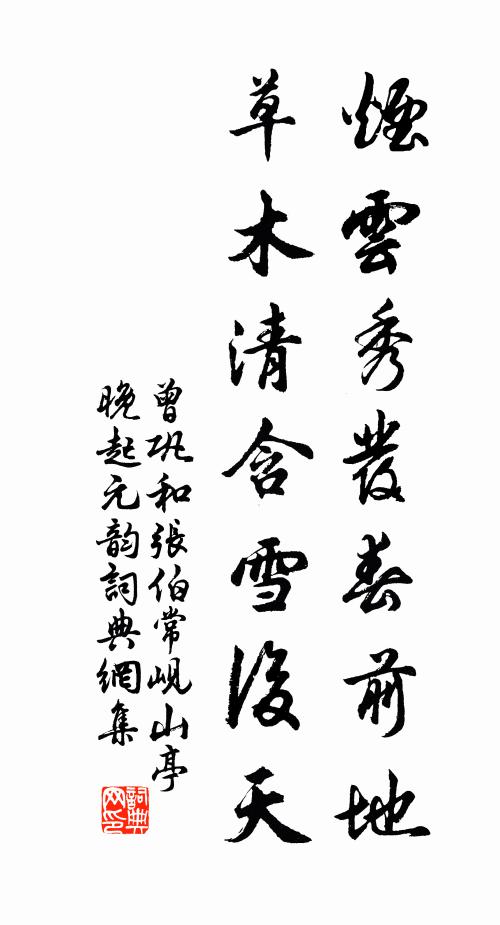 煙雲秀發春前地
草木清含雪後天
曾鞏和張伯常峴山亭
晚起元韵詞典網集
詞典
网印